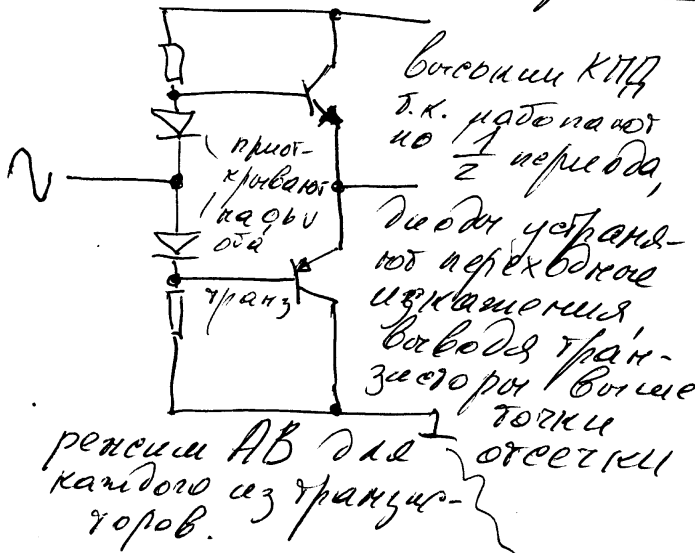 высокий КПД
т.к. работают
по 1/2 периода,
диоды устраня-
ют переходные
искажения,
выводя тран-
зисторы выше
точки
отсечки
приот-
крывают
оба
транз
режим АВ для
каждого из транзис-
торов.